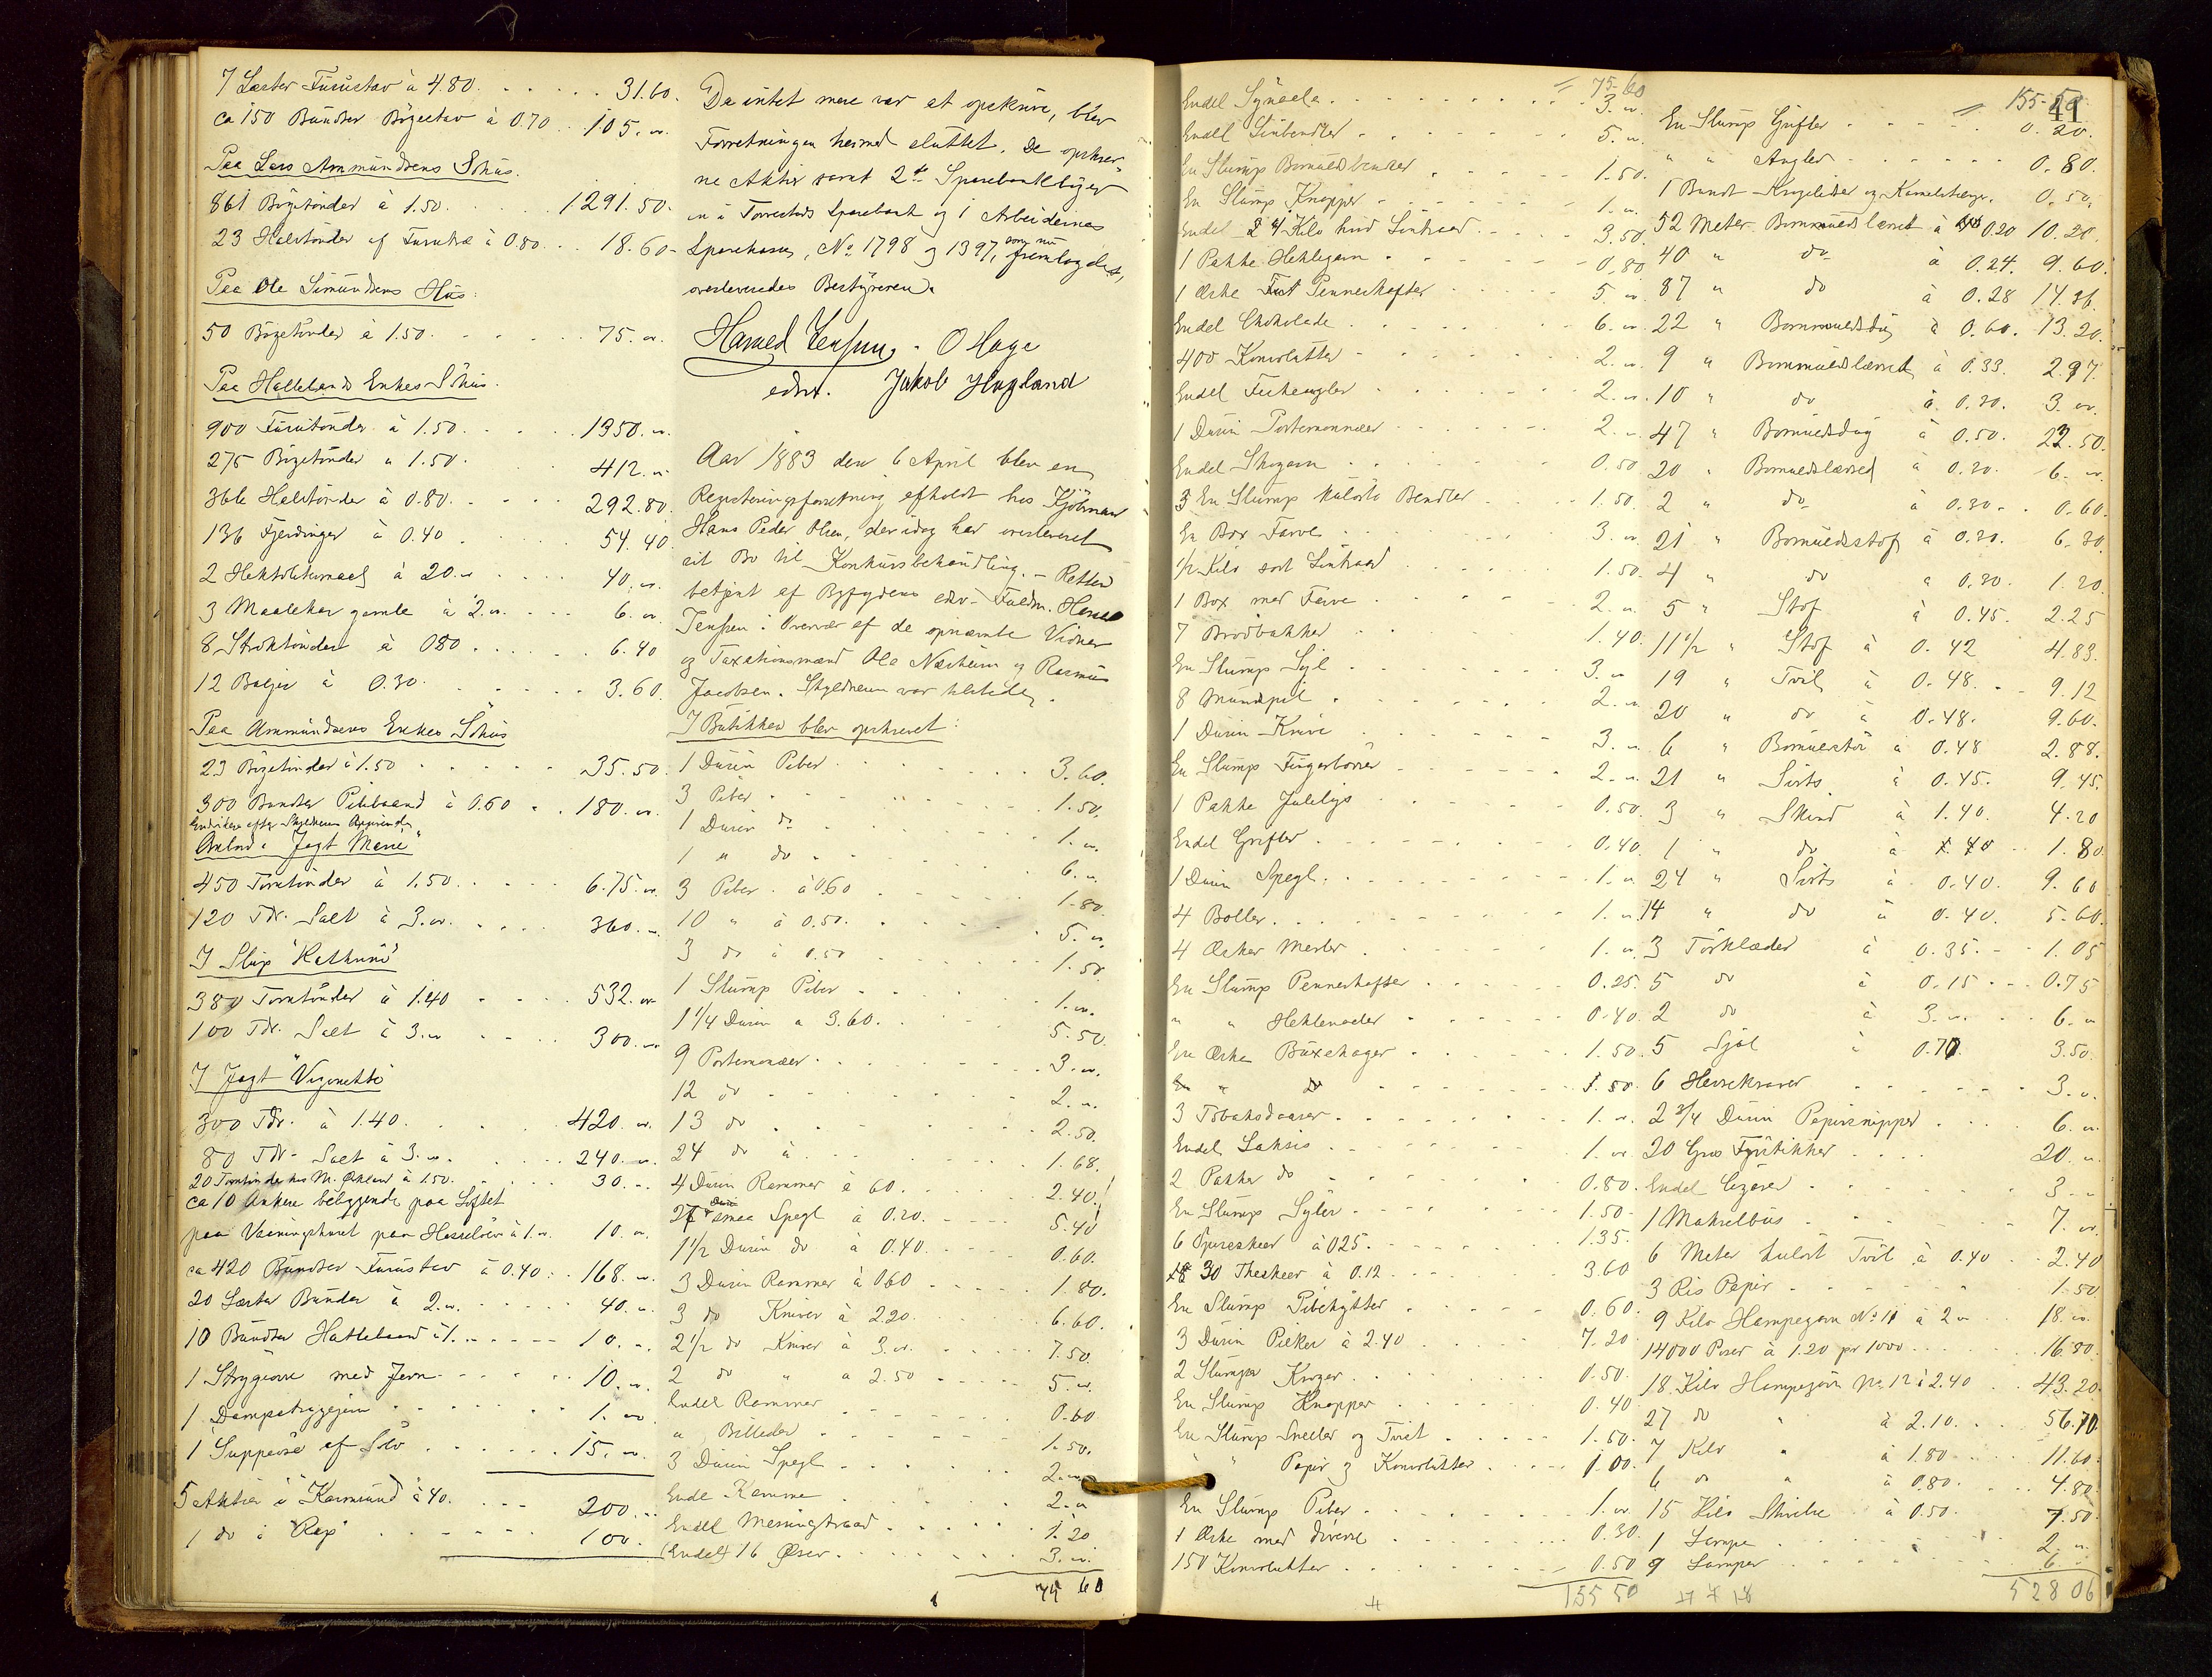 7 Læster Furustav à 4.80. 31.60.
ca 150 Bundter Bøgestav à 0.70 105. "
Paa Lars Ammundsens Søhus.
861 Bøgetønder à 1.50. 1291.50.
23 Halvtønder af Furutræ à 0.80. 18.60
Paa Ole Simundsens Hus:
50 Bøgetønder à 1.50. 75. "
Paa Hallelands Enkes Søhus.
900 Furutønder à 1.50. 1350. "
275 Bøgetønder à 1.50. 412. "
366 Halvtønder à 0.80. 292.80.
136 Fjerdinger à 0.40. 54.40.
2 Hektolitermaal à 20. " 40. "
3 Maalekar gamle à 2. " 6. "
8 Stroktønder à 0.80 6.40
12 Baljer à 0.30. 3.60.
Paa Ammundsens Enkes Søhus
23 Bøgetønder à 1.50 35.50.
300 Bundter Pilebaand à 0.60 180. "
Jagt "Marie"
450 Tomtønder à 1.50. 675. "
120 Tdr. Salt à 3. " 360. "
I Slup "Kathrine"
380 Tomtønder à 1.40 532. "
100 Tdr. Salt à 3. " 300. "
I Jagt "Vignette"
300 Tdr. à 1.40. 420. "
80 Tdr. Salt à 3. " 240. "
20 Tomtønder hos M. Økland à 1.50. 30. "
ca 10 Ankere beliggende paa Loftet
paa Vaaningshuset paa Hasseløen à 1. " 10. "
ca 420 Bundter Furustav à 0.40. 168. "
20 Læster Bunder à 2. " 40. "
10 Bundter Hattebaand à 1. " 10. "
1 Strygeovn med Jern 10. "
1 Dampstrygejern 1. "
1 Suppeøse af Sølv 15. "
5 Aktier i "Karmsund" à 40. 200. "
1 do i "Rap" 100.
Da intet mere var at opskrive, blev
Forretningen hermed sluttet. De opskrev-
ne Aktier samt 2de Sparebankbøger
en i Torvestads Sparebank og i Arbeidernes
Sparekasse, No 1798 og 1397, som nu fremlagdes,
overleveredes Bestyreren.
Harald Jensen. O Hage
edsv. Jakob Hagland
Aar 1883 den 6 April blev en
Registreringsforretning afholdt hos Kjøbmand
Hans Peder Olsen, der idag har overleveret
sit Bo til Konkursbehandling. – Retten
betjent af Byfogdens edsv. Fuldm. Harald
Jensen i Overvær af de opnævnte Vidner
og Taxationsmænd Ole Næsheim og Rasmus
Jacobsen. Skyldneren var tilstede.
I Butikken blev opskrevet:
1 Dusin Piber 3.60.
3 Piber 1.50.
1 Dusin do 1. "
1 " do 6. "
3 Piber à 0.60 1.80.
10 " à 0.50. 5. "
3 do à 0.50 1.50.
1 Slump Piber 1. "
1 1/4 Dusin a 3.60. 5.50.
9 Portemonæer 3. "
12 do 2. "
13 do 2.50.
24 do à 1.68.
4 Dusin Rammer à 60. 2.40.
27 Dusin smaa Spegl à 0.20. 5.40
1 1/2 Dusin do à 0.40. 0.60.
3 Dusin Rammer à 0.60 1.80.
3 do Kniver à 2.20. 6.60.
2 1/2 do Kniver à 3. " 7.50.
2 do " a 2.50 5. "
Endel Rammer 0.60
" Billeder 1.50.
3 Dusin Spegl 2. "
Endel Kamme 2. "
Endel Messingtraad 1.20
(Endel) 16 Øser 3. "
75 60
= 75.60
Endel Synaale 3. "
Endel Linbendler 5. "
En Slump Bomuldsbendler 1.50.
En Slump Knapper 1. "
Endel 2 4 Kilo hvid Sintraad 3.50.
1 Pakke Heklegarn 0.80
1 Æske Pennerhefter 5. "
Endel Chokolade 6. "
400 Konvolutter 2. "
Endel Fiskeangler 2. "
1 Dusin Portemonnæer 2. "
Endel Skogarn 0.50
En Slump kulørte Bendler 1.50.
En Box Farve 3. "
1/2 Kilo sort Sintraad 1.50.
1 Box med Farve 2. "
7 Brødbakker 1.40.
En Slump Sejl 3. "
8 Mundspil 2. "
1 Dusin Knive 3. "
En Slump Fingerbører 2. "
1 Pakke Julelys 0.50.
Endel Grifler 0.40.
1 Dusin Spegl. 1. "
4 Boller. 1. "
4 Æsker Merler 1. "
En Slump Pennerhefter 0.25.
" " Heklenaaler 0.40.
En Æske Buxehager 1.50.
" do 1.50
3 Tobaksdaaser 1. "
Endel Sakse 1. "
2 Pakker do 0.80.
En Slump Syler 1.50
6 Spiseskeer à 0.25. 1.35.
30 Theskeer à 0.12. 3.60
En Slump Pibehytter 0.60.
3 Dusin Pisker à 2.40 7.20
2 Slumper Kroger 0.50.
En Slump Knapper 0.40
En Slump Sneller og Tvist 1.50.
" " Papir og Konvolutter 1.00.
En Slump Piber 1. "
1 Æske med diverse 0.30.
150 Konvolutter 0.50
155 50
41
= 155.50
En Slump Grifler 0.20.
" " Angler 0.80.
1 Bundt Krogelidser og Kamelstrænge. 0.50.
52 Meter Bommuldslærred à 0.20 10.20.
40 " do à 0.24. 9.60.
87 " do à 0.28 14.36.
22 " Bommuldsdug à 0.60. 13.20.
9 " Bommuldslærred à 0.33. 2.97.
10 " do à 0.30. 3. "
47 " Bomuldsdug à 0.50. 23.50.
20 " Bomuldslærred à 0.30. 6. "
2 " do à 0.30. 0.60.
21 " Bomuldsstof à 0.30. 6.30.
4 " do a 0.30. 1.20.
5 " Stof à 0.45. 2.25
11 1/2 " Stof à 0.42 4.83.
19 " Tvil à 0.48. 9.12
20 " do à 0.48. 9.60.
6 " Bomuldstøi à 0.48 2.88.
21 " Sirts à 0.45. 9.45.
3 " Skind à 1.40. 4.20
1 " do à 1.80.
24 " Sirts à 0.40. 9.60
14 " do à 0.40. 5.60.
3 Tørklæder à 0.35. 1.05
5 do à 0.15 0.75
2 do à 3. " 6. "
5 Sjal à 0.70. 3.50.
6 Herrekraver 3. "
2 3/4 Dusin Papirsnipper 6. "
20 Gros Fyrstikker 20. "
Endel Cigarer 3. "
1 Makrelbus 7. "
6 Meter kulørt Tvil à 0.40 2.40
3 Ris Papir 1.50
9 Kilo Hampegarn No 11 à 2 " 18. "
14000 Poser à 1.20 pr 1000 16.80.
18 Kilo Hampegarn No 12 à 2.40 43.20.
27 do " à 2.10. 56.70.
7 Kilo " à 1.80 11.60.
6 do " à 0.80. 4.80.
15 Kilo Stivelse à 0.50. 7.50.
1 Lampe 2. "
9 Lamper 6. "
528 06